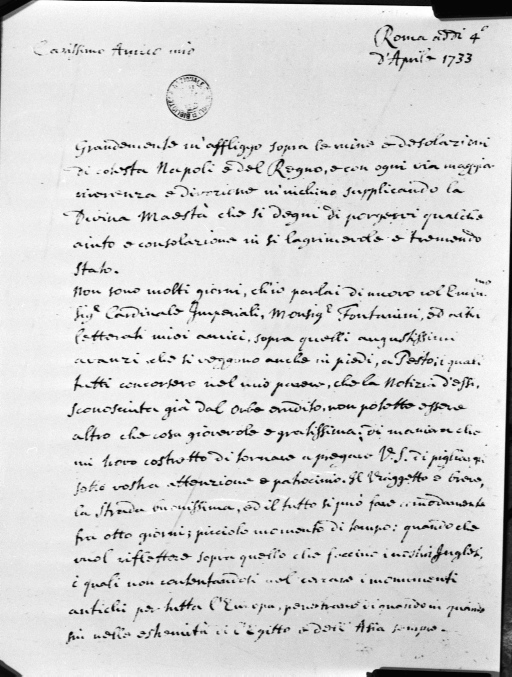 Roma addi 4°
Carissimo Amico mio
d'Aprile 1733
Grandemente m'affliggo sopra le ruine e desolazioni
di cotesta Napoli e del Regno, e con ogni via maggior
riverenza e divozione m'inchino supplicando la
Divina Maestà che si degni di porgervi qualche
aiuto e consolazione in sì lagrimevole e tremendo
stato.
Non sono molti giorni, ch'io parlai di nuovo col Emin.mo
Sig.r Cardinale Imperiali, Monsig.r Fontanini, ed altri
letterati miei amici, sopra quelli augustissimi
avanzi che si veggono anche in piedi, a Pesto; i quali
tutti concorsero nel mio parere, che la Notizia d'essi,
sconosciuta già dal Orbe erudito, non potette essere
altro che cosa giovevole e gratissima; di maniera che
mi trovo costretto di tornare a pregare V.S. di pigliarsi
sotto vostra attenzione e patrocinio. Il Viaggetto è breve,
la strada buonissima, ed il tutto si può fare commodamente
fra otto giorni; picciolo momento di tempo: quando che
vuol riflettere sopra quello che faccino i nostri Inglesi,
i quali non contentandosi nel cercare i monumenti
antichi per tutta l'Europa, penetrano di quando in quando
sin nelle estremità di l'Egitto e dell'Asia sempre.